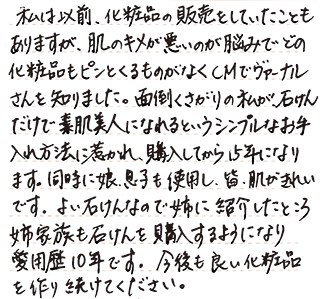 私は以前、化粧品の販売をしていたことも
ありますが、肌のキメが悪いのが悩みでどの
化粧品もピンとくるものがなくCMでヴァーナル
さんを知りました。面倒くさがりの私が、石けん
だけで素肌美人になれるというシンプルなお手
入れ方法に惹かれ、購入してから15年になり
ます。同時に娘、息子も使用し、皆、肌がきれい
です。よい石けんなので姉に紹介したところ
姉家族も石けんを購入するようになり
愛用歴10年です。今後も良い化粧品
を作り続けてください。